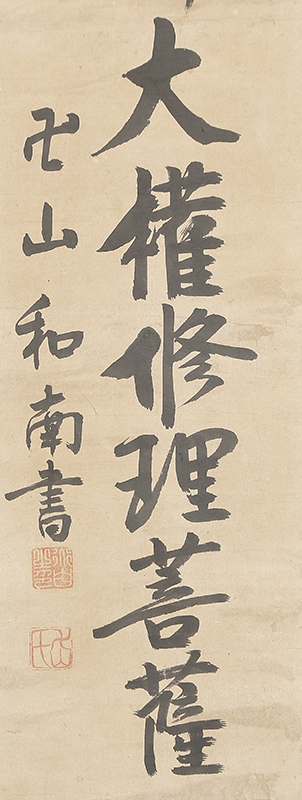 大權修理菩薩
卍山和南書